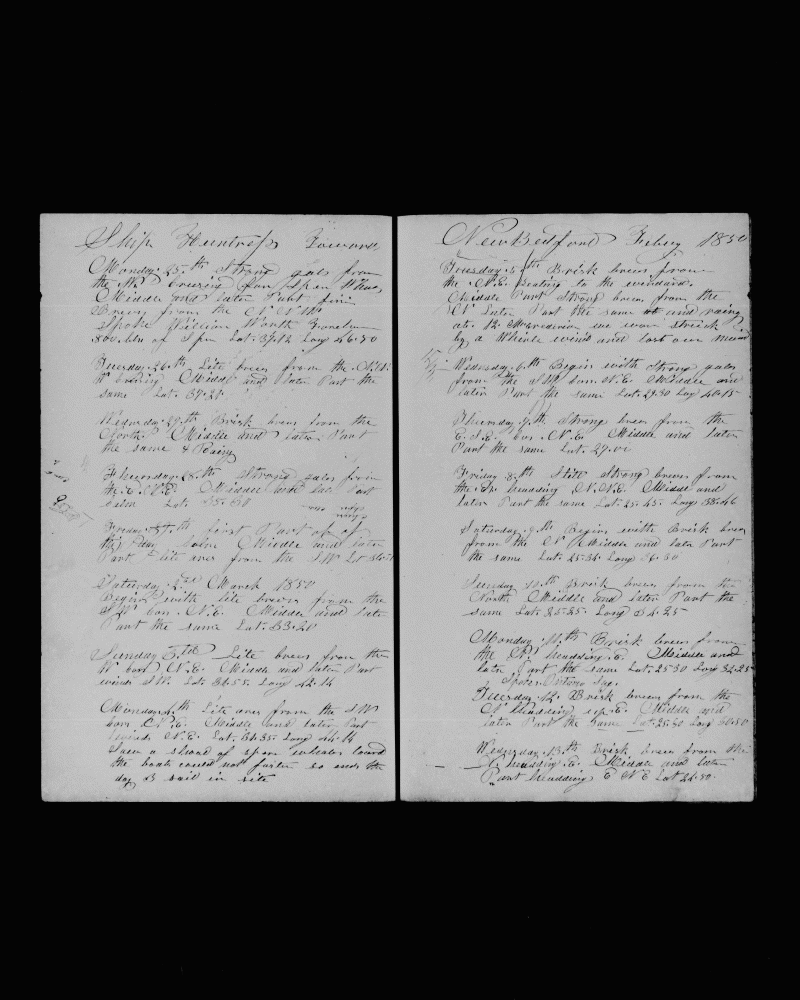 Ship Huntress Towards
Monday 25th Strong gales from
the N. Cruising for Spen Whales
Middle and later Part fine
Breeze from the N N W
Spoke William Worth
800 bbls of Spen Lat. 37.12 Long 46.30
Tuesday 26th Lite brees from the N.W.
Middle and later Part the
same Lat. 37.21
Wednesday 27th Brisk brees from the
North Middle and later Part
the same & Rainy
Thursday 28th Strong gales from
the Middle Part Later Part
Lat. 35.50
Friday first Part of
this day Calm Middle and later
Part lite ares from the S.W.
Saturday 2nd March 1850
Begins with lite brees from the
S.W. bon. N.E. Middle and later
Part the same Lat. 33.21
Sunday 3rd Lite brees from the
W bon N.E. Middle and later Part
winds S.W. Lat. 31.55 Long 42.14
Monday 4th Lite ares from the S.W
bon N.E. Middle and later Part
winds N.E. Lat. 31.35 Long 41.14
Saw a shoal of spen whales lowd
the boats coued not fasten so ends the
day 3 sail in site
New Bedford Febuy 1850
Tuesday 5th Brisk brees from
the N.E. beating to the windard.
Middle Part Strong brees from the
N Later Part the same and rainy
at 12 Meredian we wore struck
by a Whirle wind and lost our main
Wednesday 6th Begin with strong gales
from the S.W. bon. N.E. Middle and
later Part the same Lat. 29.30 Long 40.15
Thursday 7th Strong brees from the
E.S.E. bon N.E. Middle and later
Part the same Lat. 27.00
Friday 8th Still strong brees from
the E. heading N.N.E. Middle and
later Part the same Lat. 25.45 Long 38.46
Saturday 9th Begin with Brisk brees
from the N Middle and later Part
the same Lat. 25.34 Long 36.30
Sunday 10th Brisk brees from the
North Middle and later Part the
same Lat. 25.25 Long 34.25
Monday 11th Brisk brees from
the N. heading E. Middle and
later Part the same Lat. 25.30 Long 32.25
Spoke
Tuesday 12 Brisk brees from the
N heading E. Middle and
later Part the same Lat. 25.30 Long 30.50
Wednesday 13th Brisk brees from the
N heading E. Middle and later
Part heading E N E Lat 24.30